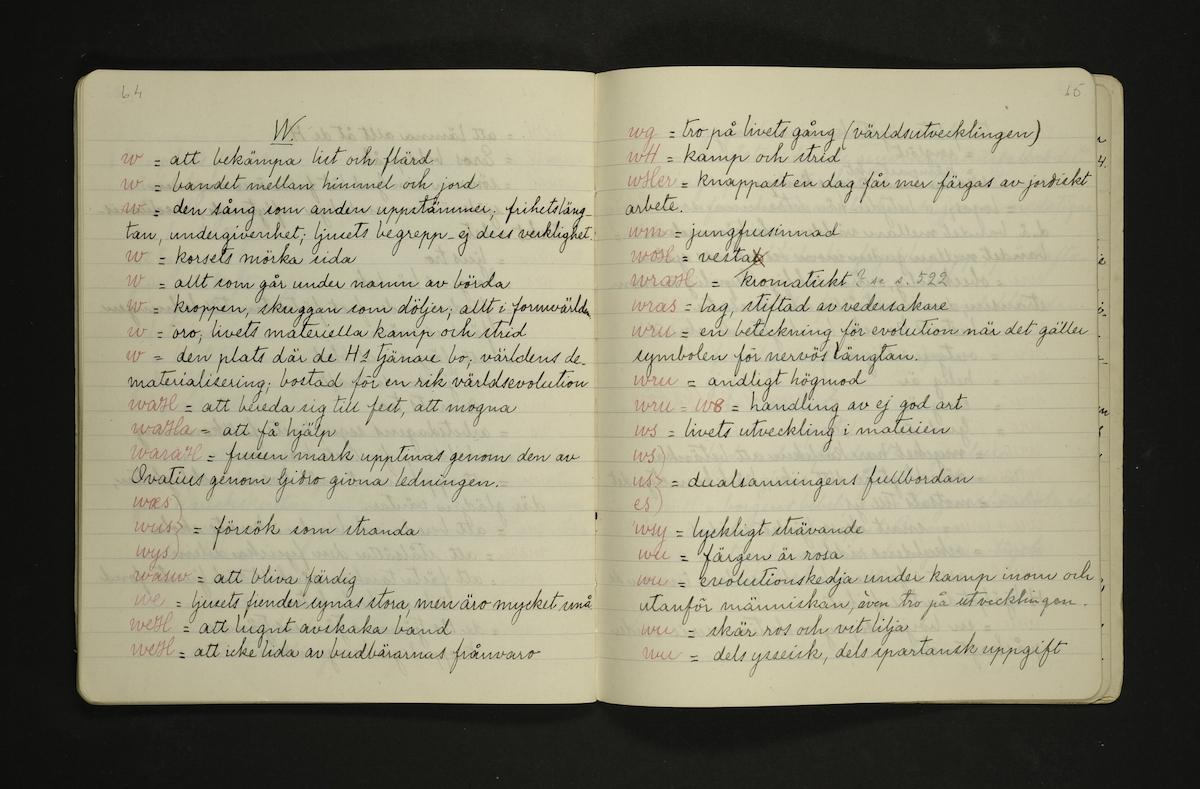 64
W.
w = att bekämpa list och flärd
w = bandet mellan himmel och jord
w = den sång som anden uppstämmer; frihetsläng-
tan, undergivenhet; ljusets begrepp - ej dess verklighet.
w = korsets mörka sida
w = allt som går under namn av börda
w = kroppen, skuggan som döljer; allt i formvärlden
w = oro; livets materiella kamp och strid
w = den plats där de Hs tjänare bo; världens de-
materialisering; bostad för en rik världsevolution
waH = att bereda sig till fest, att mogna
waHa = att få hjälp
waraH = frusen mark upptinas genom den av
Ovatius genom Gidro givna ledningen.
wæs
wus } = försök som stranda
wys
wasw = att bliva färdig
we = ljusets fiender synas stora, men äro mycket små
weH = att lugnt avskaka band
weH = att icke lida av budbärarnas frånvaro
65
wg = tro på livets gång (världsutvecklingen)
wH = kamp och strid
wHer = knappast en dag får mer färgas av jordiskt
arbete.
wm = jungfrusinnad
woH = vestal
wraH = kromatiskt ? se s. 522
wras = lag, stiftad av vedersakare
wru = en beteckning för evolution när det gäller
symbolen för nervös längtan.
wru = andligt högmod
wru = w8 = handling av ej god art
ws = livets utveckling i materien
ws)
us} = dualsanningens fullbordan
es)
wsy = lyckligt strävande
wu = färgen är rosa
wu = evolutionskedja under kamp inom och
utanför människan, även tro på utvecklingen.
wu = skär ros och vit lilja
wu = dels ysseisk, dels spartansk uppgift